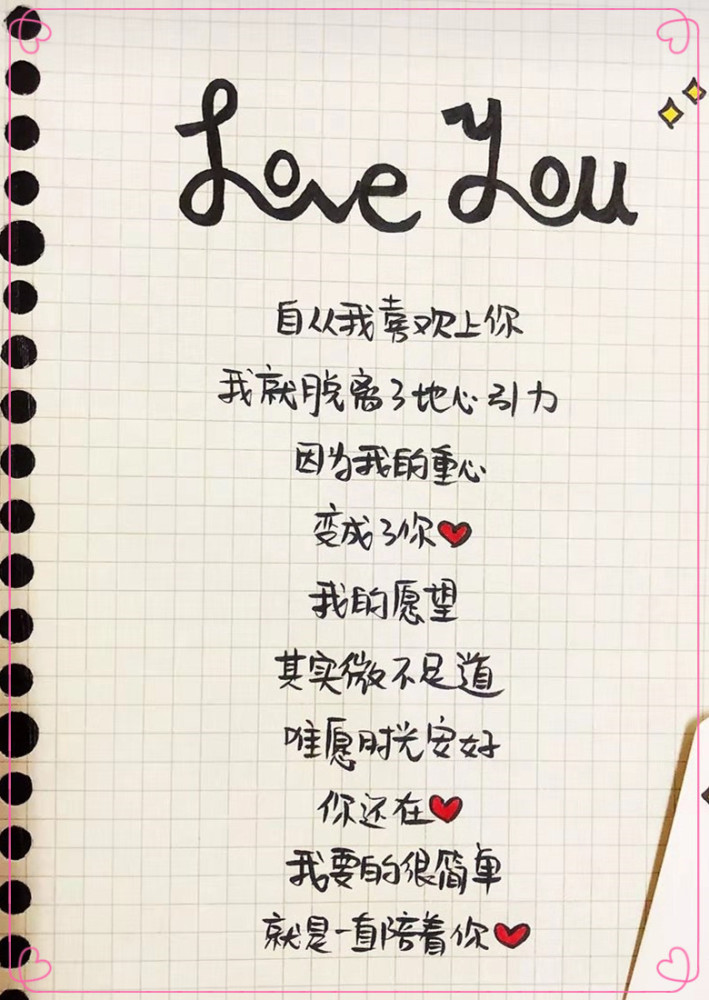 Love You
自从我喜欢上你
我就脱离了地心引力
因为我的重心
变成了你
我的愿望
其实微不足道
唯愿时光安好
你还在
我要的很简单
就是一直陪着你